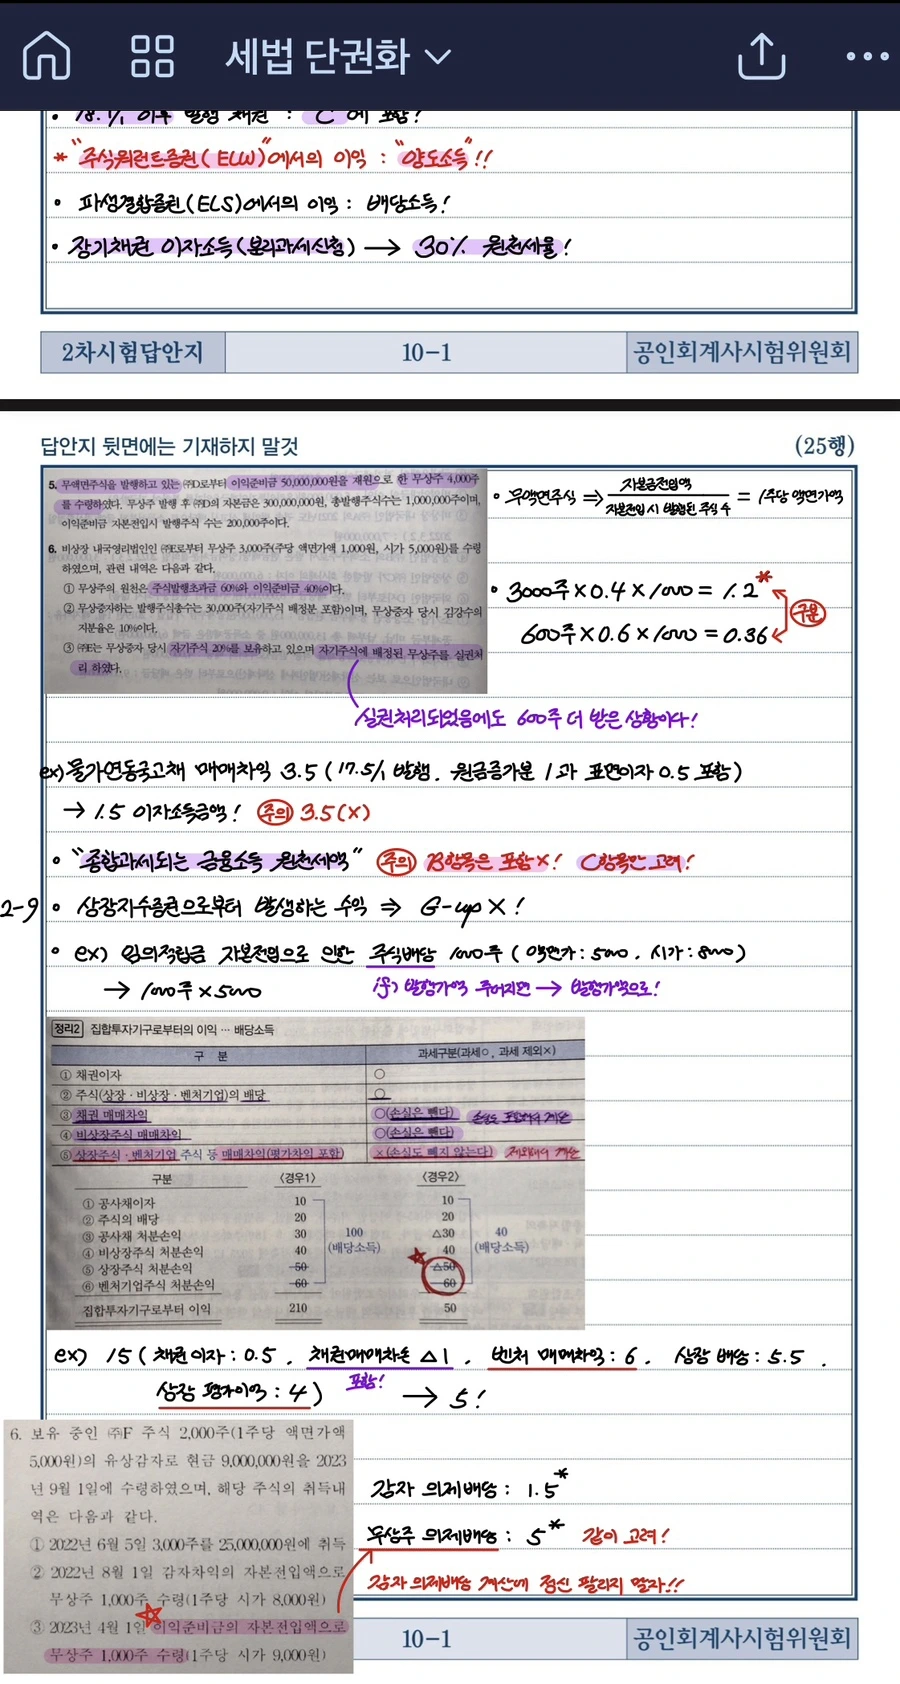 세법 단권화
• 18.1/1 이후 발행 채권 : C에 포함!
* "주식워런트증권(ELW)"에서의 이익 : "양도소득"!!
• 파생결합증권(ELS)에서의 이익 : 배당소득!
• 장기채권 이자소득(분리과세신청) → 30% 원천세율!
2차시험답안지 10-1 공인회계사시험위원회
답안지 뒷면에는 기재하지 말것 (25행)
5. 무액면주식을 발행하고 있는 ㈜D로부터 이익준비금 50,000,000원을 재원으로 한 무상주 4,000주
를 수령하였다. 무상주 발행 후 ㈜D의 자본금은 300,000,000원, 총발행주식수는 1,000,000주이며,
이익준비금 자본전입시 발행주식 수는 200,000주이다.
6. 비상장 내국영리법인인 ㈜E로부터 무상주 3,000주(주당 액면가액 1,000원, 시가 5,000원)를 수령
하였으며, 관련 내역은 다음과 같다.
① 무상주의 원천은 주식발행초과금 60%와 이익준비금 40%이다.
② 무상증자하는 발행주식총수는 30,000주(자기주식 배정분 포함)이며, 무상증자 당시 김갑수의
지분율은 10%이다.
③ ㈜E는 무상증자 당시 자기주식 20%를 보유하고 있으며 자기주식에 배정된 무상주를 실권처
리 하였다.
• 무액면주식 ⇒ 자본금전입액 / 자본전입시 발행된 주식수 = 1주당 액면가액
• 3000주×0.4×1000 = 1.2*
600주×0.6×1000 = 0.36
구분
실권처리되었음에도 600주 더 받은 상황이다!
ex) 물가연동국고채 매매차익 3.5 (17.5/1 발행. 원금증가분 1과 표면이자 0.5 포함)
→ 1.5 이자소득금액! 주의 3.5(X)
• "종합과세되는 금융소득 원천세액" 주의 B항목은 포함X! C항목만 고려!
2-9 • 상장지수증권으로부터 발생하는 수익 ⇒ G-up X!
• ex) 임의적립금 자본전입으로 인한 주식배당 1000주 (액면가:5000. 시가:8000)
→ 1000주×5000 if) 발행가액 주어지면 → 발행가액으로!
정리2 집합투자기구로부터의 이익 … 배당소득
구 분 과세구분(과세○, 과세 제외×)
① 채권이자 ○
② 주식(상장·비상장·벤처기업)의 배당 ○
③ 채권 매매차익 ○(손실은 뺀다) 손실도 포함해서 계산
④ 비상장주식 매매차익 ○(손실은 뺀다)
⑤ 상장주식·벤처기업 주식 등 매매차익(평가차익 포함) ×(손실도 빼지 않는다) 제외해서 계산
구분 〈경우1〉 〈경우2〉
① 공사채이자 10 10
② 주식의 배당 20 20
③ 공사채 처분손익 30 100 △30 40
④ 비상장주식 처분손익 40 (배당소득) 40 (배당소득)
⑤ 상장주식 처분손익 50 △50
⑥ 벤처기업주식 처분손익 60 60
집합투자기구로부터 이익 210 50
ex) 15 (채권이자:0.5. 채권매매차손 △1. 벤처 매매차익:6. 상장 배당:5.5.
포함!
상장 평가이익:4) → 5!
6. 보유 중인 ㈜F 주식 2,000주(1주당 액면가액
5,000원)의 유상감자로 현금 9,000,000원을 2023
년 9월 1일에 수령하였으며, 해당 주식의 취득내
역은 다음과 같다.
① 2022년 6월 5일 3,000주를 25,000,000원에 취득
② 2022년 8월 1일 감자차익의 자본전입액으로
무상주 1,000주 수령(1주당 시가 8,000원)
③ 2023년 4월 1일 이익준비금의 자본전입액으로
무상주 1,000주 수령(1주당 시가 9,000원)
감자 의제배당 : 1.5*
무상주 의제배당 : 5* 같이 고려!
감자 의제배당 계산에 정신 팔리지 말자!!
10-1 공인회계사시험위원회